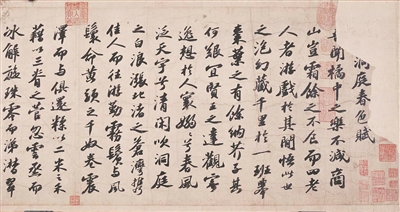 洞庭春色賦
聞橘中之樂不減商
山豈霜餘之不食而四老
人者游戲於其間悟此世
之泡幻藏千里於一班舉
棗葉之有餘納芥子其
何艱宜賢王之達觀寄
逸想於人寰嫋嫋兮春風
泛天宇兮清閑吹洞庭
之白浪漲北渚之蒼灣攜
佳人而往游勤霧鬢與風
鬟命黃頭之千奴卷震
澤而與俱還糅以二米之禾
藉以三脊之菅忽雲烝而
冰解旋珠零而涕潸翠